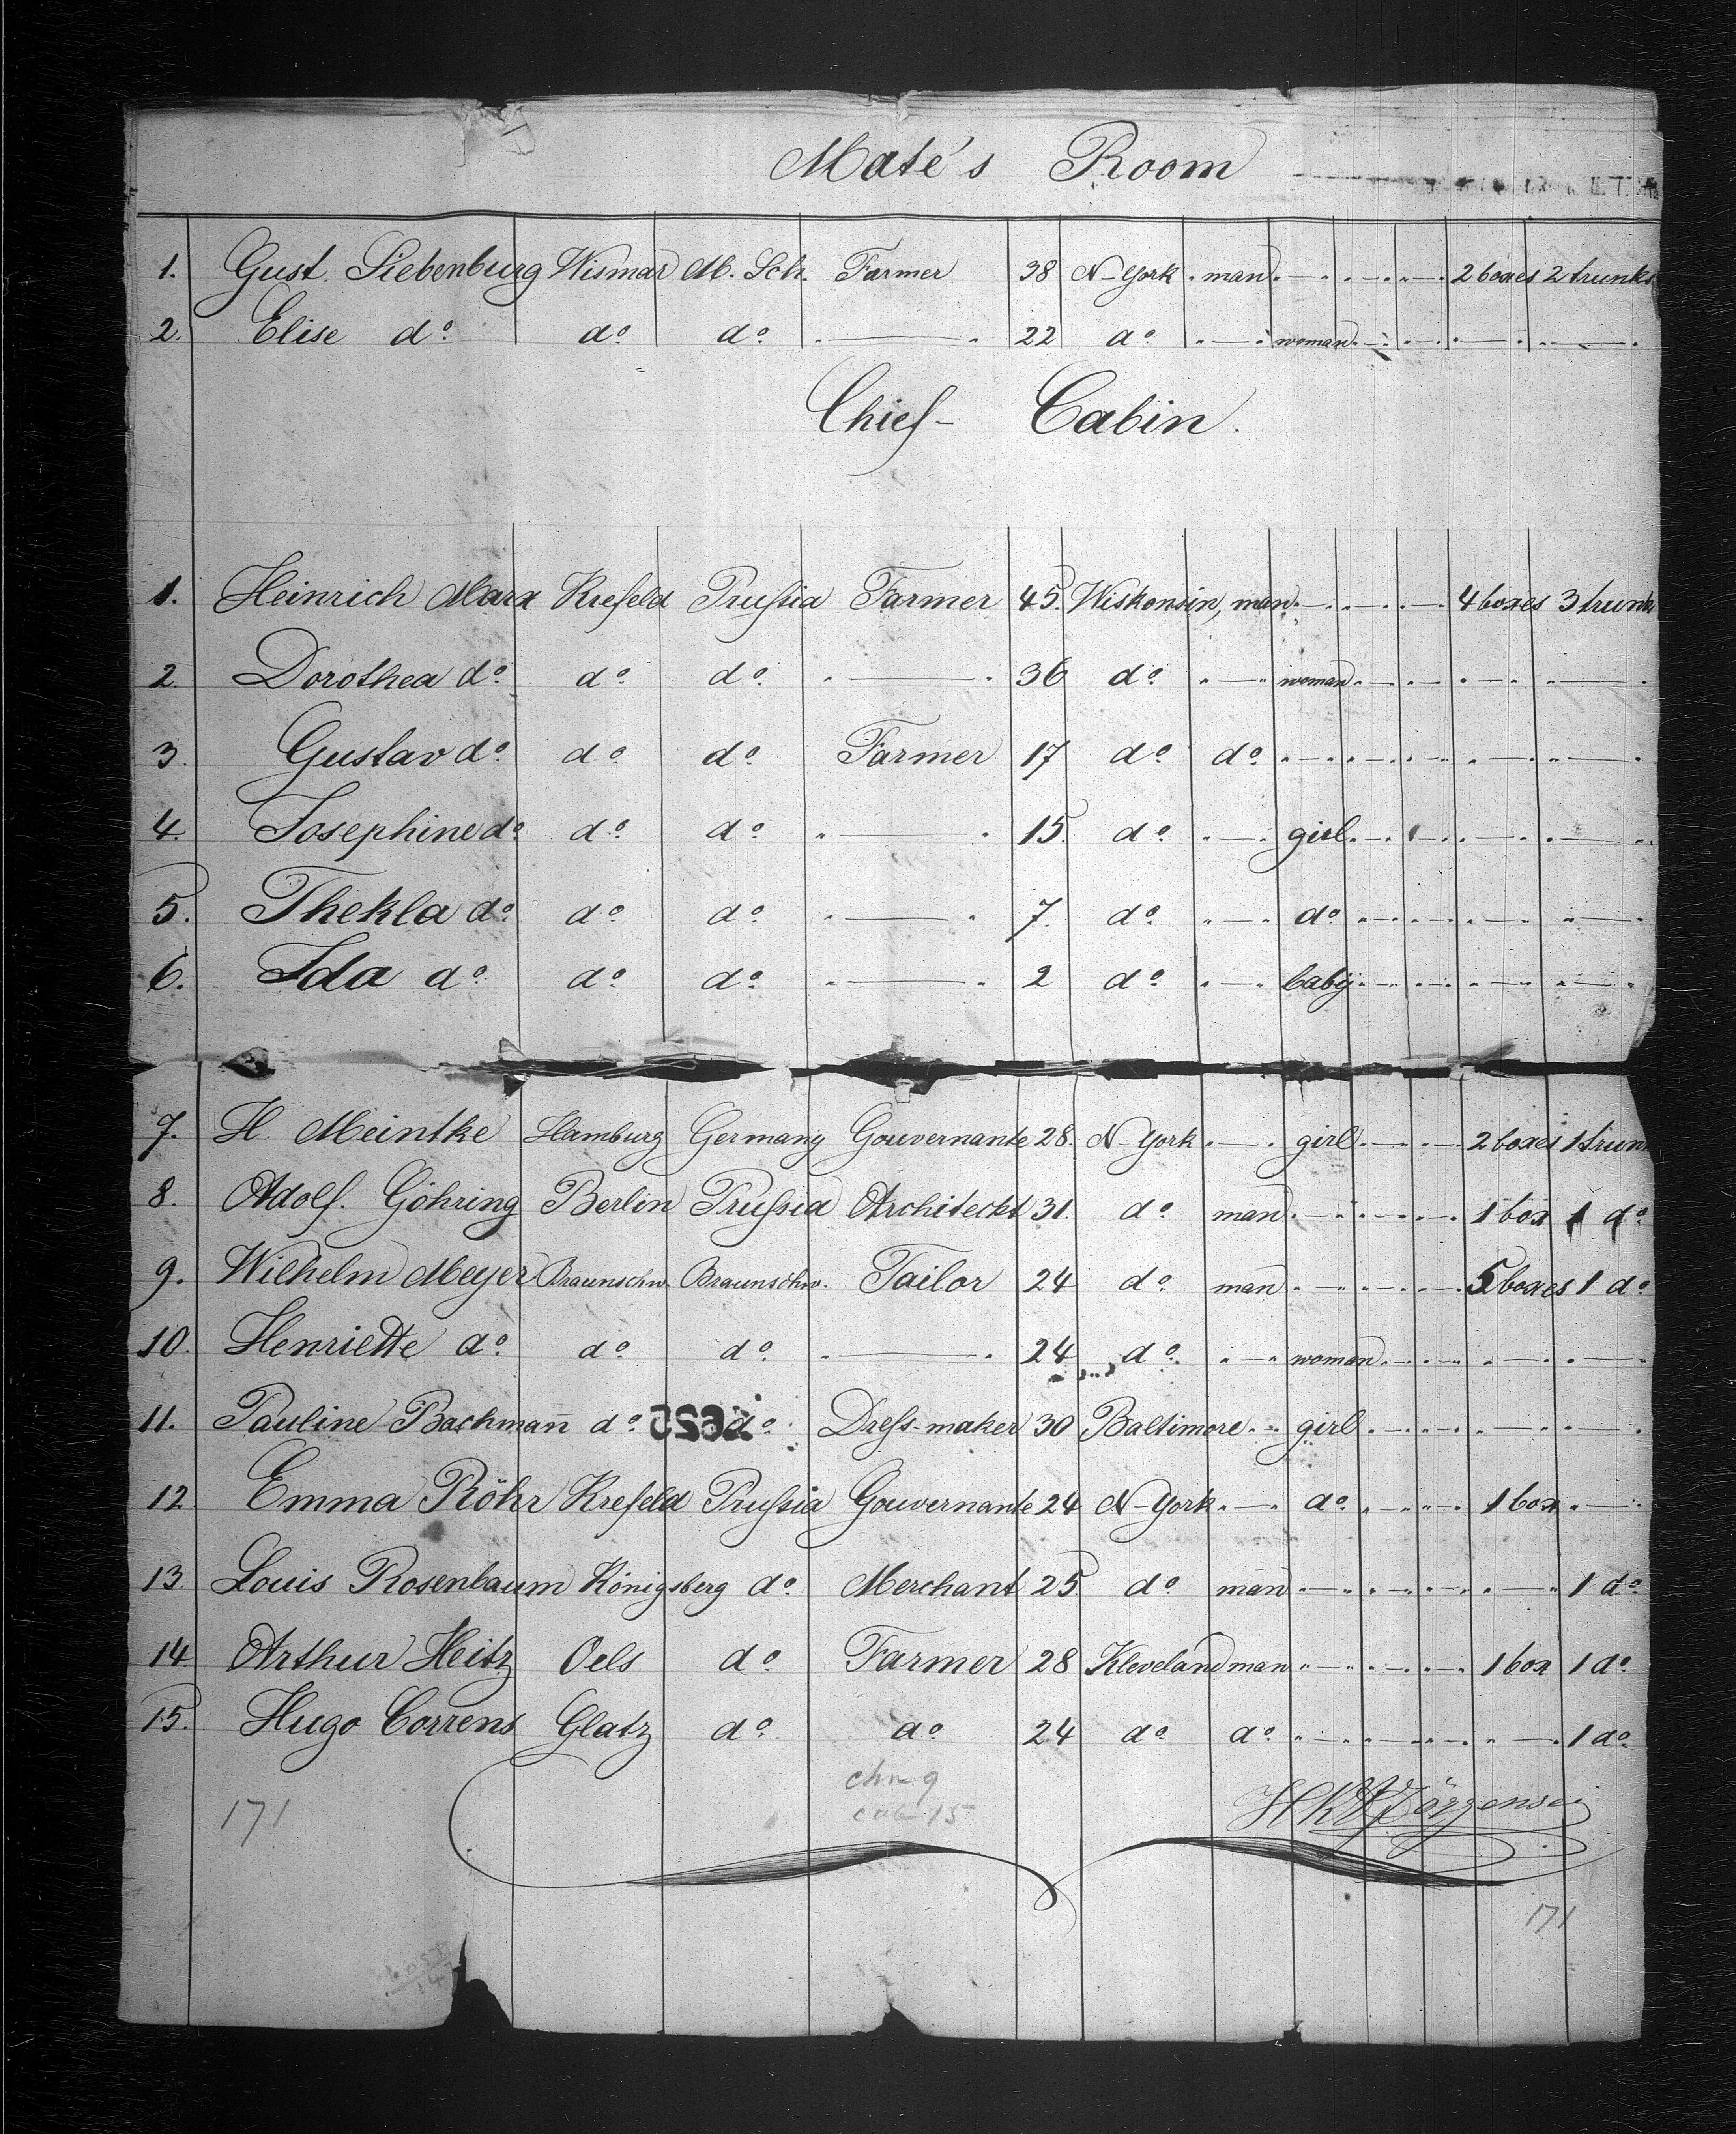 Mate's Room
1. Gust. Siebenburg Wismar M. Sch. Farmer 38 N-York man 2 boxes 2 trunks
2. Elise do do do 22 do woman
Chief- Cabin.
1. Heinrich Marx Krefeld Prussia Farmer 45. Wiskonsin, man 4 boxes 3 trunk
2. Dorothea do do do 36 do woman
3. Gustav do do do Farmer 17 do do
4. Josephine do do do 15. do girl
5. Thekla do do do 7. do do
6. Ida do do do 2 do baby
7. H. Meintke Hamburg Germany Gouvernante 28. N-York girl 2 boxes 1 trunk
8. Adolf. Göhring Berlin Prussia Architeckt 31. do man 1 box 1 do
9. Wilhelm Meyer Braunschw. Braunschw. Tailor 24 do man 5 boxes 1 do
10. Henriette do do do 24 do woman
11. Pauline Bachmann do do Dress-maker 30 Baltimore girl
12 Emma Röhr Krefeld Prussia Gouvernante 24 N-York do 1 box
13. Louis Rosenbaum Königsberg do Merchant 25 do man 1 do
14. Arthur Heitz Oels do Farmer 28 Kleveland man 1 box 1 do
15. Hugo Correns Glatz do do 24 do do 1 do
chn 9
cab 15
171
171